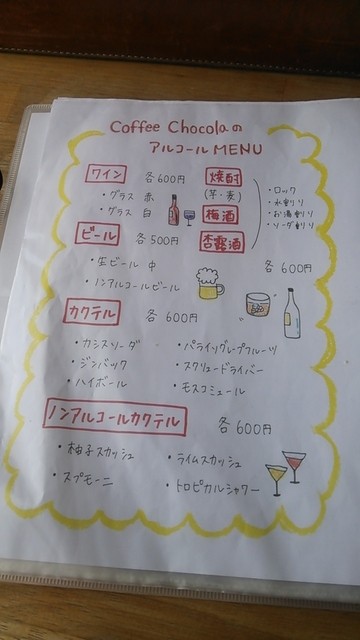 Coffee Chocolaの
アルコールMENU
ワイン 各600円
・グラス 赤
・グラス 白
ビール 各500円
・生ビール 中
・ノンアルコールビール
焼酎
(芋・麦)
梅酒
杏露酒
・ロック
・水割り
・お湯割り
・ソーダ割り
各600円
カクテル 各600円
・カシスソーダ
・ジンバック
・ハイボール
・パライソグレープフルーツ
・スクリュードライバー
・モスコミュール
ノンアルコールカクテル 各600円
・柚子スカッシュ
・スプモーニ
・ライムスカッシュ
・トロピカルシャワー